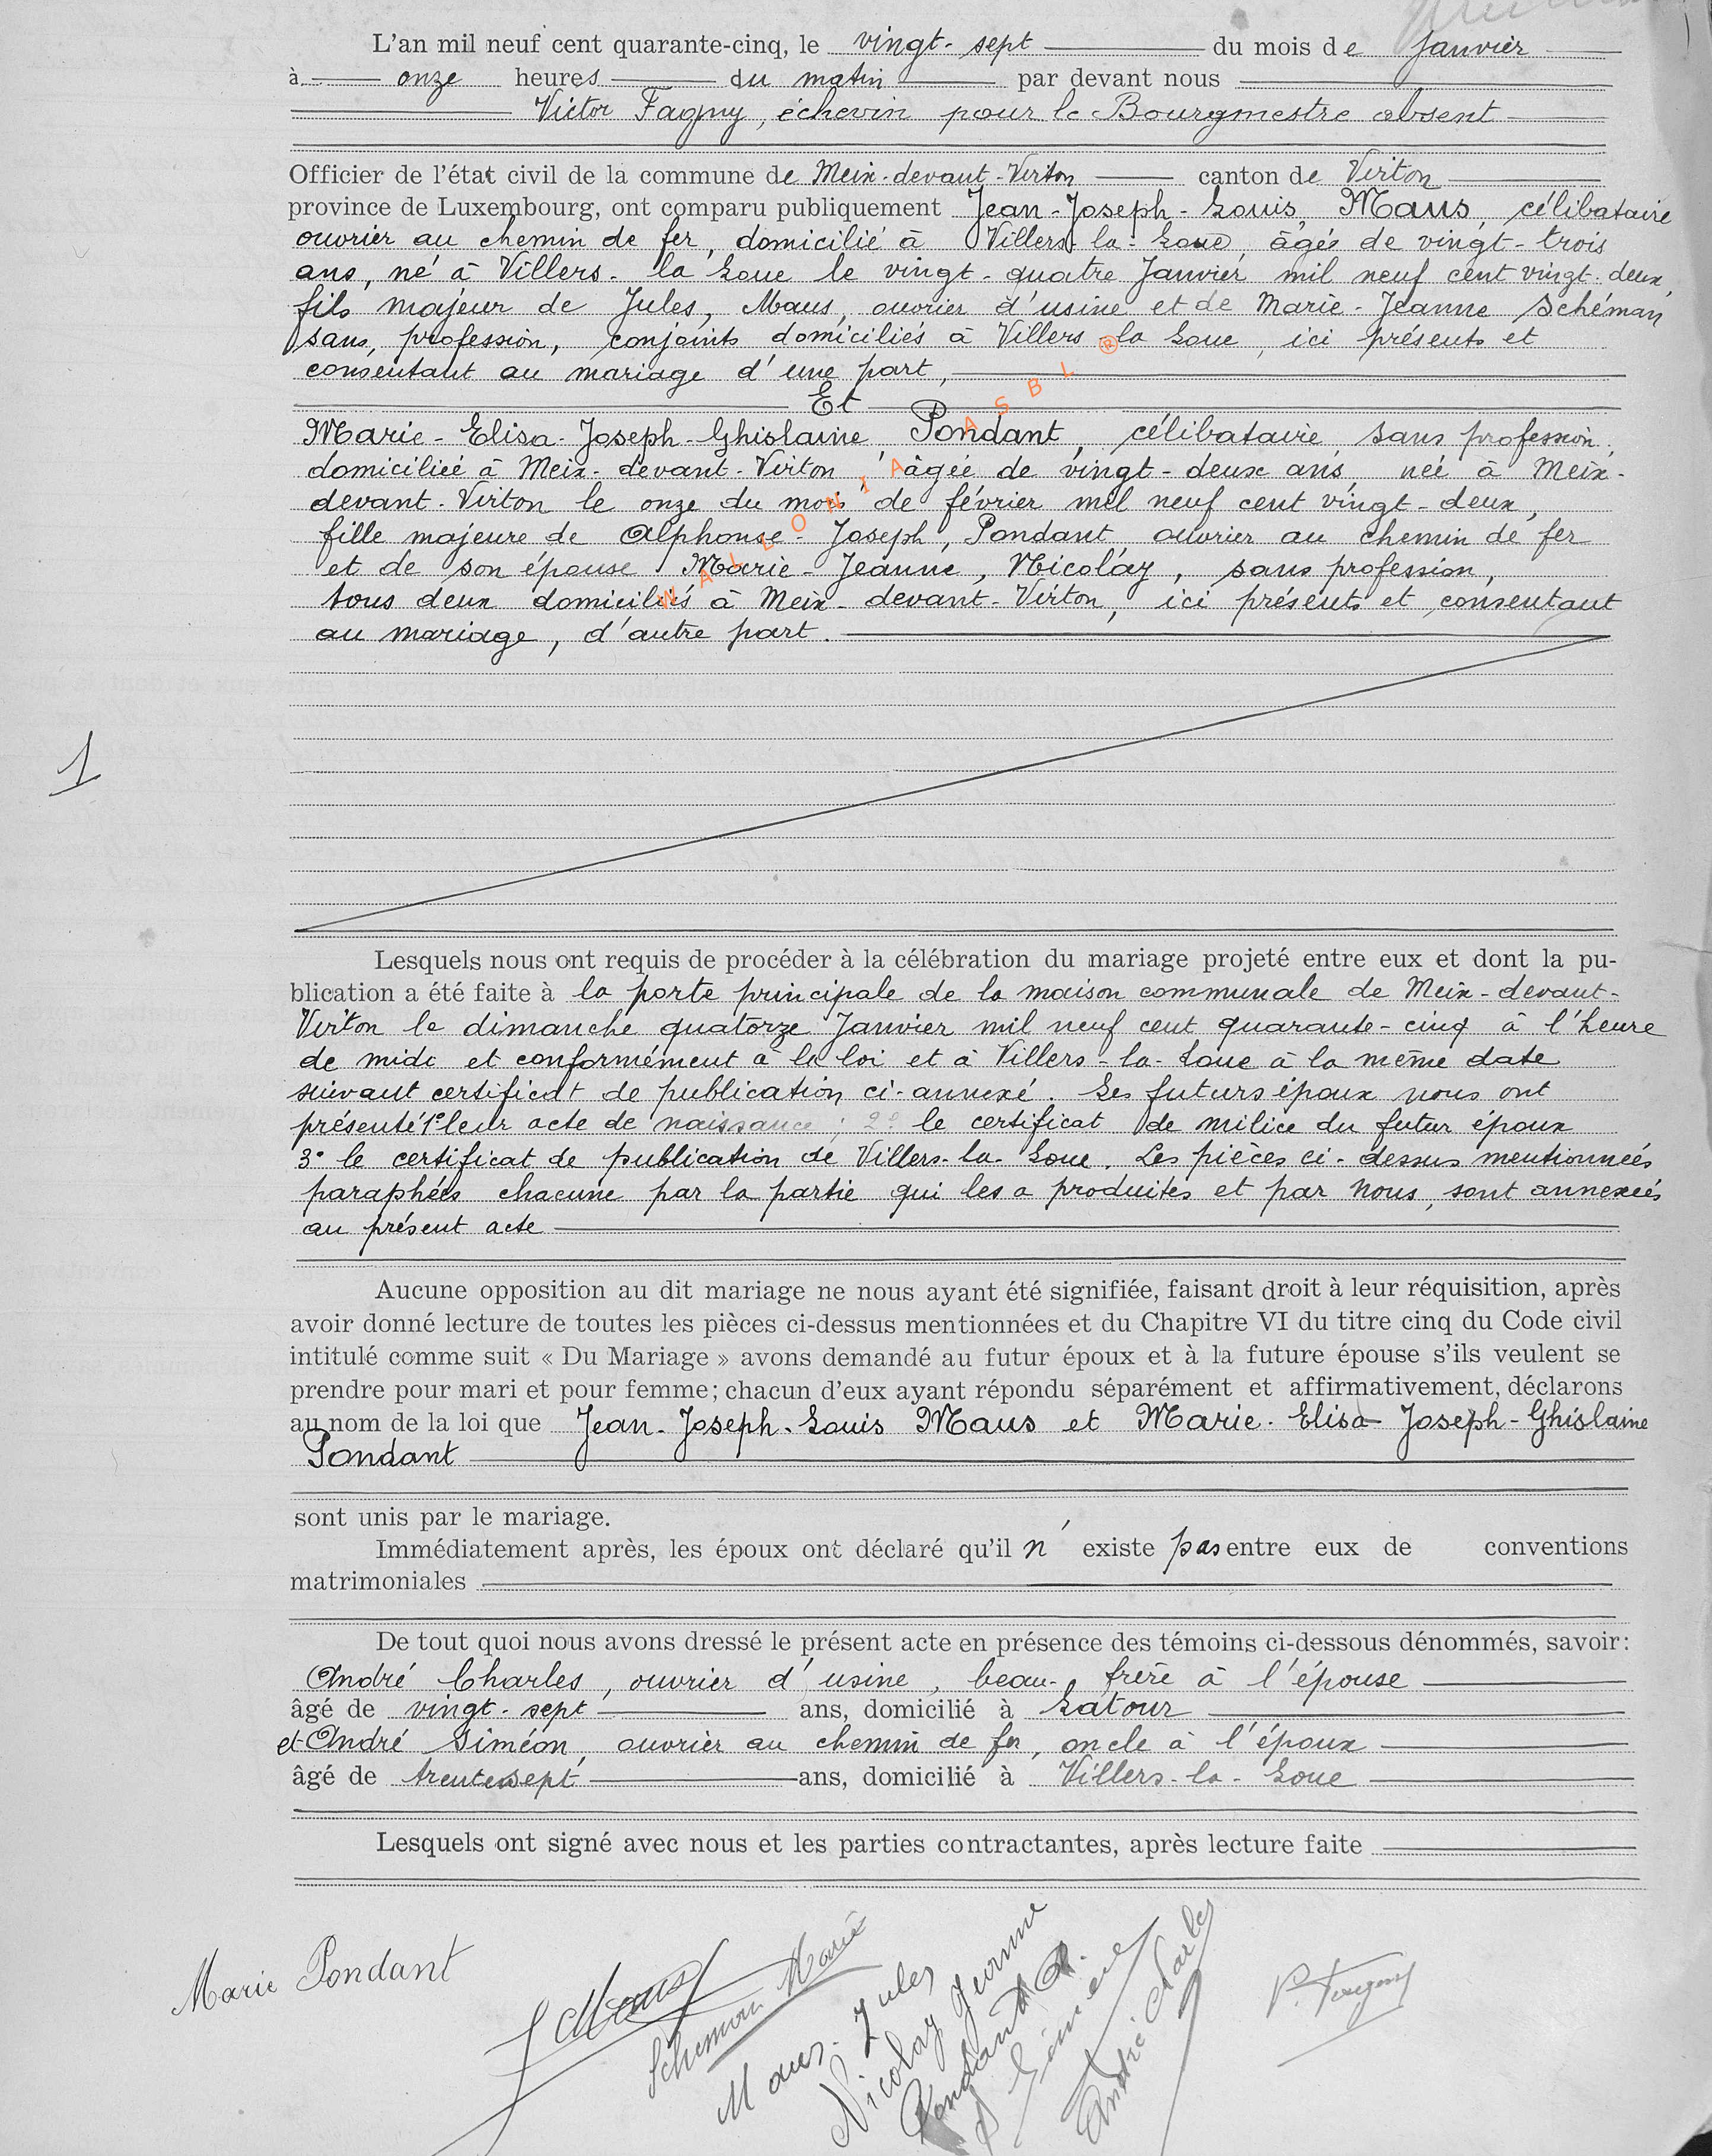 L'an mil neuf cent quarante-cinq, le vingt-sept du mois de Janvier
à onze heures du matin par devant nous
Victor Fagny, échevin pour le Bourgmestre absent
Officier de l'état civil de la commune de Meix-devant-Virton canton de Virton
province de Luxembourg, ont comparu publiquement Jean-Joseph-Louis, Maus, célibataire
ouvrier au chemin de fer, domicilié à Villers-la-Loue, âgés de vingt-trois
ans, né à Villers-la Loue le vingt-quatre Janvier mil neuf cent vingt-deux,
fils majeur de Jules, Maus, ouvrier d'usine et de Marie-Jeanne Schéman
sans, profession, conjoints domiciliés à Villers-la Loue, ici présents et
consentant au mariage d'une part,
Et
Marie-Elisa-Joseph-Ghislaine, Pondant, célibataire, sans profession,
domiciliée à Meix-devant-Virton, âgée de vingt-deux ans, née à Meix-
devant-Virton le onze du mois de février mil neuf cent vingt-deux,
fille majeure de Alphonse-Joseph, Pondant, ouvrier au chemin de fer
et de son épouse Marie-Jeanne, Nicolay, sans profession,
tous deux domiciliés à Meix-devant-Virton, ici présents et consentant
au mariage, d'autre part.
WALLONIA ASBL ®
1
Lesquels nous ont requis de procéder à la célébration du mariage projeté entre eux et dont la pu-
blication a été faite à la porte principale de la maison communale de Meix-devant-
Virton le dimanche quatorze Janvier mil neuf cent quarante-cinq à l'heure
de midi et conformément à la loi et à Villers-la-Loue à la même date
suivant certificat de publication ci-annexé. Les futurs époux nous ont
présenté 1° leur acte de naissance; 2° le certificat de milice du futur époux
3° le certificat de publication de Villers-la-Loue. Les pièces ci-dessus mentionnées
paraphées chacune par la partie qui les a produites et par Nous, sont annexées
au présent acte
Aucune opposition au dit mariage ne nous ayant été signifiée, faisant droit à leur réquisition, après
avoir donné lecture de toutes les pièces ci-dessus mentionnées et du Chapitre VI du titre cinq du Code civil
intitulé comme suit « Du Mariage » avons demandé au futur époux et à la future épouse s'ils veulent se
prendre pour mari et pour femme; chacun d'eux ayant répondu séparément et affirmativement, déclarons
au nom de la loi que Jean-Joseph-Louis Maus et Marie-Elisa-Joseph-Ghislaine
Pondant
sont unis par le mariage.
Immédiatement après, les époux ont déclaré qu'il n' existe pas entre eux de conventions
matrimoniales
De tout quoi nous avons dressé le présent acte en présence des témoins ci-dessous dénommés, savoir:
André Charles, ouvrier d'usine, beau-frère à l'épouse
âgé de vingt-sept ans, domicilié à Latour
et André Siméon, ouvrier au chemin de fer, oncle à l'époux
âgé de trente-sept ans, domicilié à Villers-la-Loue
Lesquels ont signé avec nous et les parties contractantes, après lecture faite
Marie Pondant
J Maus
Scheman Marie
Maus Jules
Nicolay Jeanne
Pondant A.
André Charles
V. Fagny